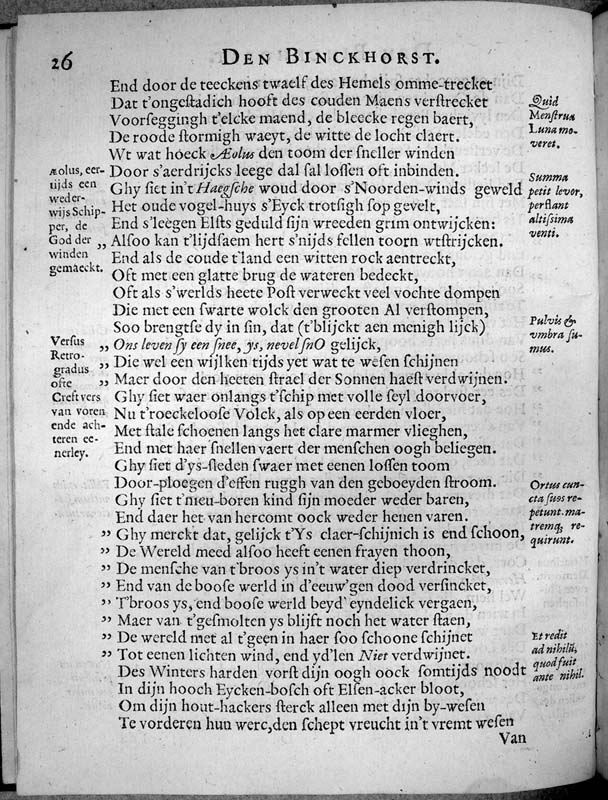 26
DEN BINCKHORST.
End door de teeckens twaelf des Hemels omme-trecket
Dat t'ongestadich hooft des couden Maens verstrecket
Voorseggingh t'elcke maend, de bleecke regen baert,
De roode stormigh waeyt, de witte de locht claert.
Wt wat hoeck Æolus den toom der sneller winden
Door s'aerdrijcks leege dal sal lossen oft inbinden.
Ghy siet in't Haegsche woud door s'Noorden-winds geweld
Het oude vogel-huys s'Eyck trotsigh sop gevelt,
End s'leegen Elsts geduld sijn wreeden grim ontwijcken:
„ Alsoo kan t'lijdsaem hert s'nijds fellen toorn wtstrijcken.
End als de coude t'land een witten rock aentreckt,
Oft met een glatte brug de wateren bedeckt,
Oft als s'werlds heete Post verweckt veel vochte dompen
Die met een swarte wolck den grooten Al verstompen,
Soo brengtse dy in sin, dat (t'blijckt aen menigh lijck)
„ Ons leven sy een snee, ys, nevel snO gelijck,
„ Die wel een wijlken tijds yet wat te wesen schijnen
„ Maer door den heeten strael der Sonnen haest verdwijnen.
Ghy siet waer onlangs t'schip met volle seyl doorvoer,
Nu t'roeckeloose Volck, als op een eerden vloer,
Met stale schoenen langs het clare marmer vlieghen,
End met haer snellen vaert der menschen oogh beliegen.
Ghy siet d'ys-sleden swaer met eenen lossen toom
Door-ploegen d'effen ruggh van den geboeyden stroom.
Ghy siet t'nieu-boren kind sijn moeder weder baren,
End daer het van hercomt oock weder henen varen.
„ Ghy merckt dat, gelijck t'Ys claer-schijnich is end schoon,
„ De Wereld meed alsoo heeft eenen frayen thoon,
„ De mensche van t'broos ys in't water diep verdrincket,
„ End van de boose werld in d'eeuw'gen dood versincket,
„ T'broos ys, end boose werld beyd' eyndelick vergaen,
„ Maer van t'gesmolten ys blijft noch het water staen,
„ De wereld met al t'geen in haer soo schoone schijnet
„ Tot eenen lichten wind, end yd'len Niet verdwijnet.
Des Winters harden vorst dijn oogh oock somtijds noodt
In dijn hooch Eycken-bosch oft Elsen-acker bloot,
Om dijn hout-hackers sterck alleen met dijn by-wesen
Te vorderen hun werc, den schept vreucht in't vremt wesen
Van
Æolus, eer-
tijds een
weder-
wijs Schip-
per, de
God der
winden
gemaeckt.
Versus
Retro-
gradus
ofte
Creftvers
van voren
ende ach-
teren ee-
nerley.
Quid
Menstrua
Luna mo-
veret.
Summa
petit livor,
perflant
altissima
venti.
Pulvis &
umbra su-
mus.
Ortus cun-
cta suos re-
petunt. ma-
tremq; re-
quirunt.
Et redit
ad nihilũ,
quod fuit
ante nihil.